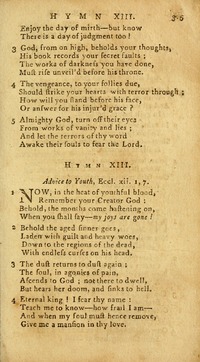 HYMN XIII. 36
Enjoy the day of mirth—but know
There is a day of judgment too!
3 God, from on high, beholds your thoughts,
His book records your secret faults;
The works of darkness you have done,
Must rise unveil'd before his throne.
4 The vengeance, to your follies due,
Should strike your hearts with terror through;
How will you stand before his face,
Or answer for his injur'd grace?
5 Almighty God, turn off their eyes
From works of vanity and lies;
And let the terrors of thy word
Awake their souls to fear the Lord.
HYMN XIII.
Advice to Youth, Eccl. xii. 1, 7.
1 NOW, in the heat of youthful blood,
Remember your Creator God:
Behold, the months come hastening on,
When you shall say—my joys are gone!
2 Behold the aged sinner goes,
Laden with guilt and heavy woes,
Down to the regions of the dead,
With endless curses on his head.
3 The dust returns to dust again;
The soul, in agonies of pain,
Ascends to God; not there to dwell,
But hears her doom, and sinks to hell.
4 Eternal king! I fear thy name:
Teach me to know—how frail I am—
And when my soul must hence remove,
Give me a mansion in thy love.